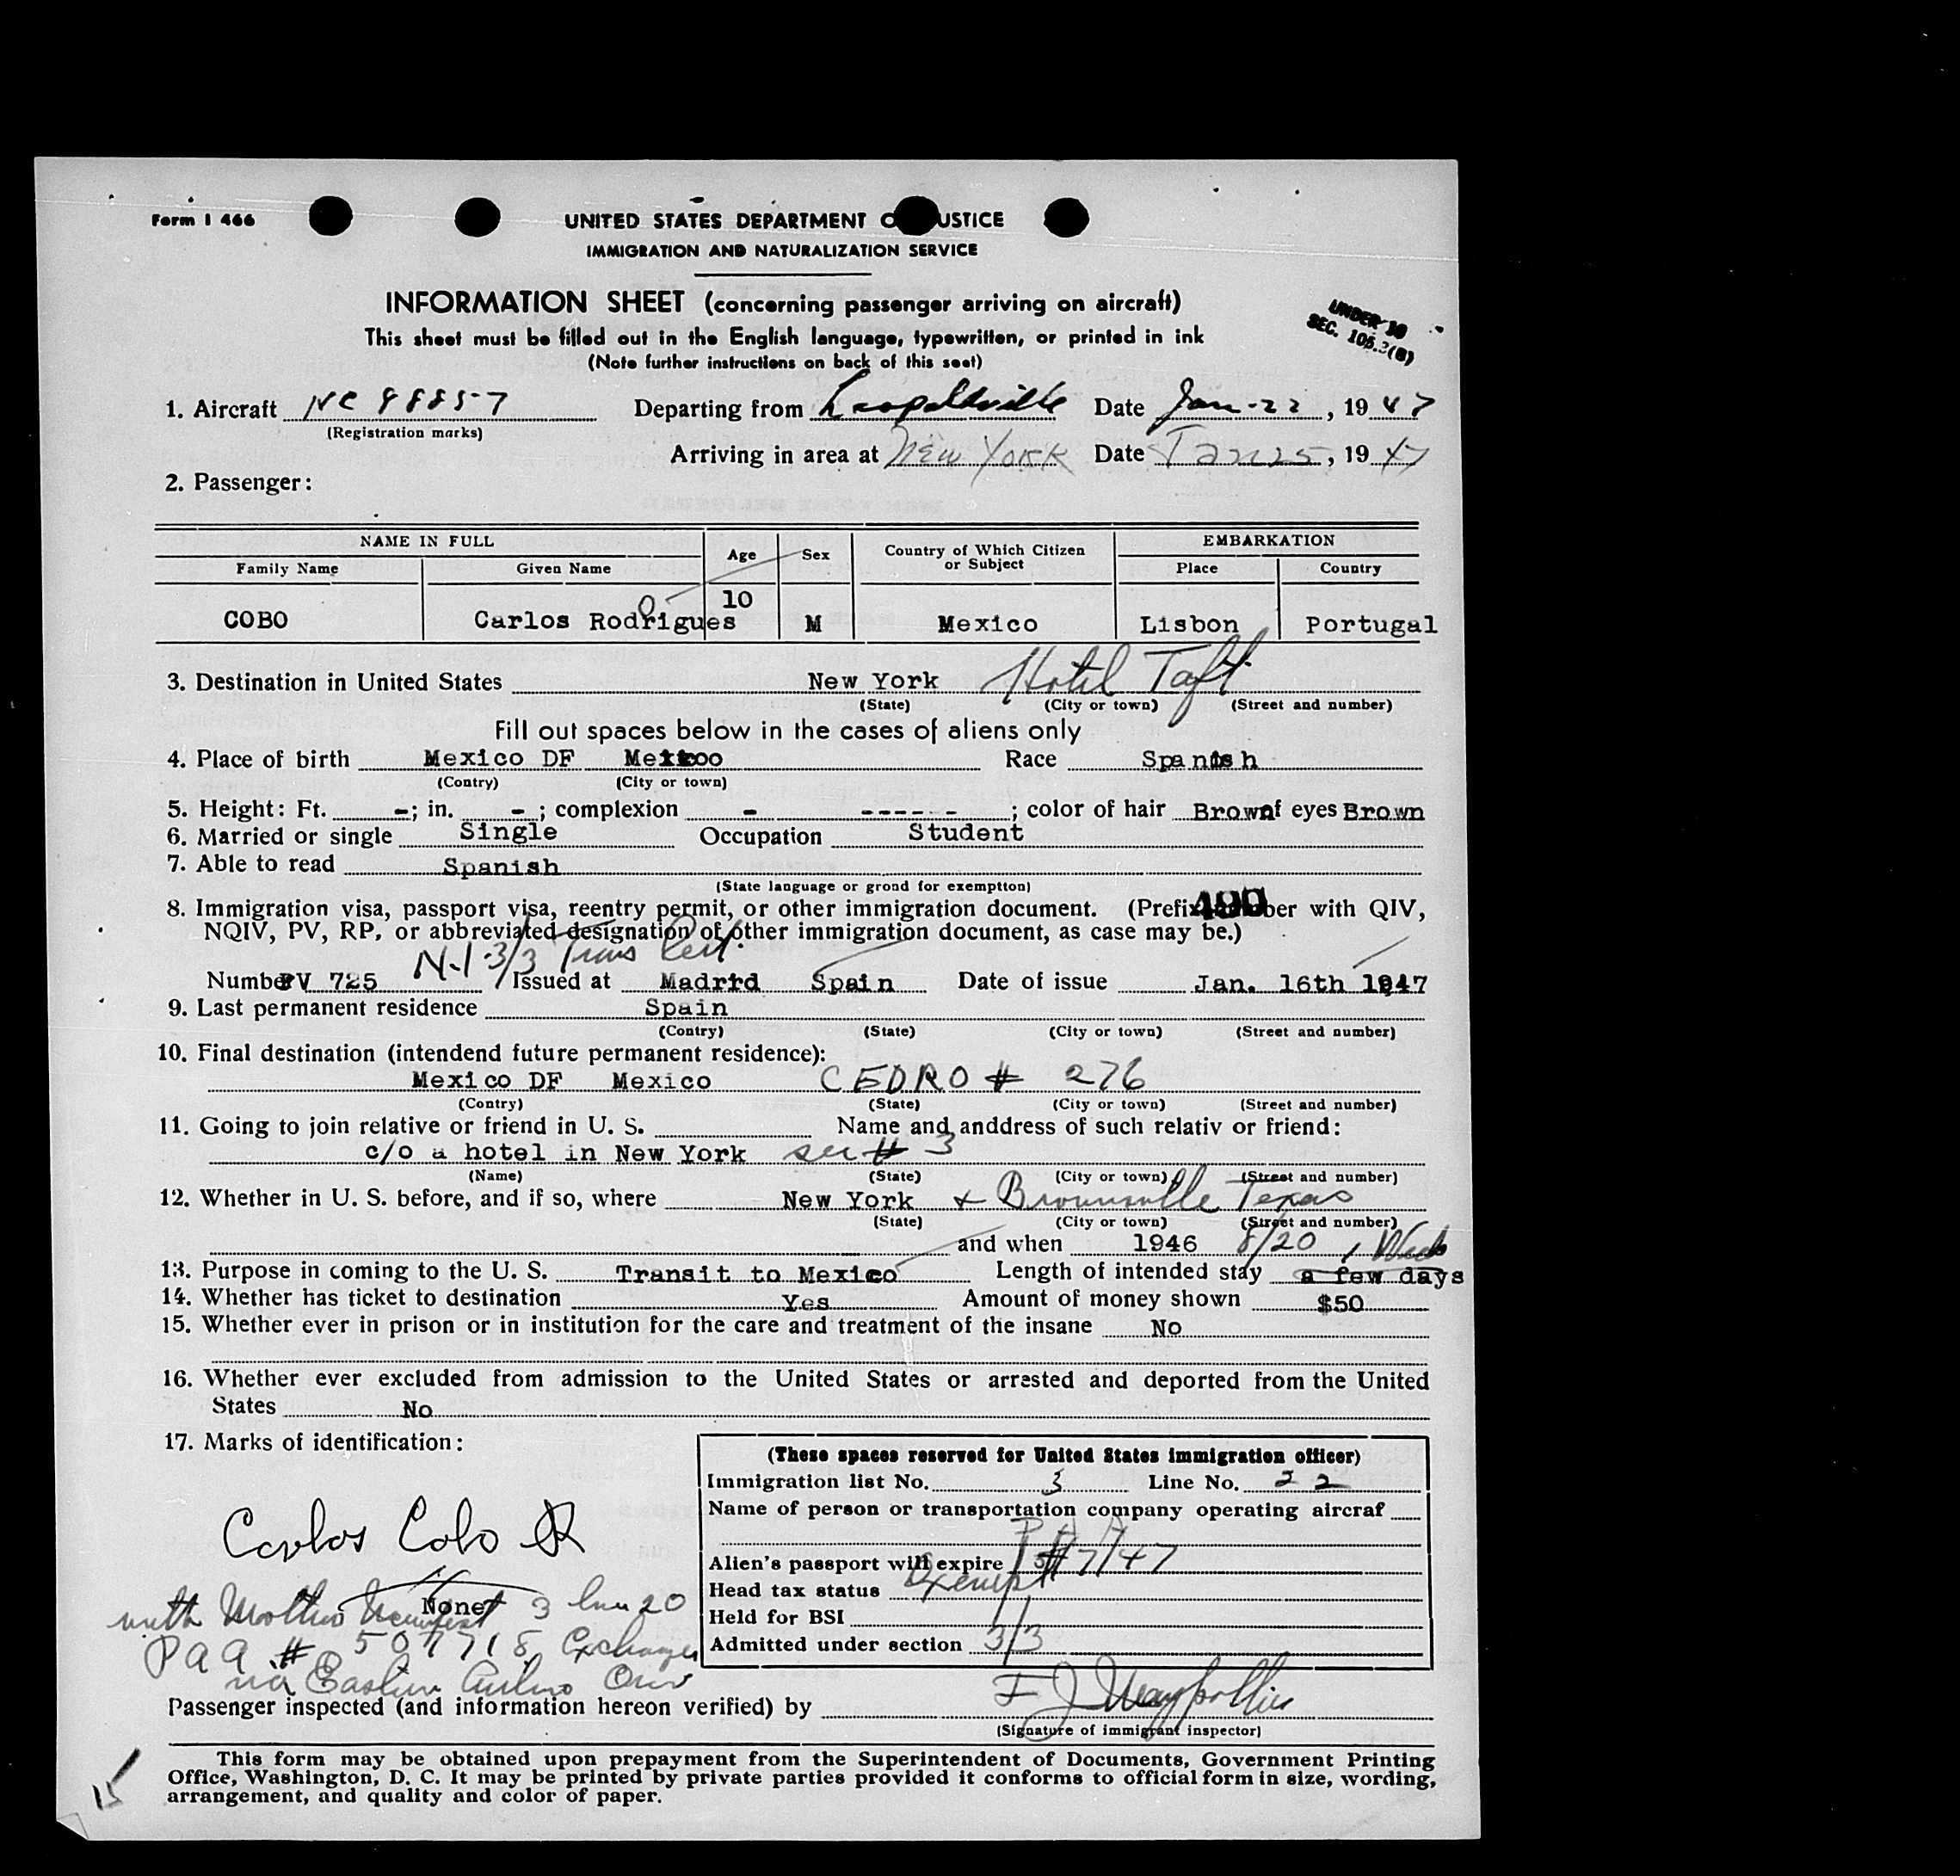 Form I 466
UNITED STATES DEPARTMENT O USTICE
IMMIGRATION AND NATURALIZATION SERVICE
INFORMATION SHEET (concerning passenger arriving on aircraft)
UNDER 16
SEC. 105.3(B)
This sheet must be filled out in the English language, typewritten, or printed in ink
(Note further instructions on back of this seet)
1. Aircraft NC 88857 Departing from Leopoldville Date Jan-22, 1947
(Registration marks)
Arriving in area at New York Date Jan 25, 1947
2. Passenger:
NAME IN FULL Age Sex Country of Which Citizen or Subject EMBARKATION
Family Name Given Name Place Country
COBO Carlos Rodrigues 10 M Mexico Lisbon Portugal
3. Destination in United States New York Hotel Taft
(State) (City or town) (Street and number)
Fill out spaces below in the cases of aliens only
4. Place of birth Mexico DF Mexico Race Spanish
(Contry) (City or town)
5. Height: Ft. -; in. -; complexion - ------; color of hair Brown of eyes Brown
6. Married or single Single Occupation Student
7. Able to read Spanish
(State language or grond for exemption)
8. Immigration visa, passport visa, reentry permit, or other immigration document. (Prefix number with QIV,
NQIV, PV, RP, or abbreviated designation of other immigration document, as case may be.)
N-1 3/3 Trans Cert.
Number PV 725 Issued at Madrid Spain Date of issue Jan. 16th 1947
9. Last permanent residence Spain
(Contry) (State) (City or town) (Street and number)
10. Final destination (intendend future permanent residence):
Mexico DF Mexico CEDRO # 276
(Contry) (State) (City or town) (Street and number)
11. Going to join relative or friend in U. S. Name and anddress of such relativ or friend:
c/o a hotel in New York see # 3
(Name) (State) (City or town) (Street and number)
12. Whether in U. S. before, and if so, where New York & Brownsville Texas
(State) (City or town) (Street and number)
and when 1946 8/20 1 Week
13. Purpose in coming to the U. S. Transit to Mexico Length of intended stay a few days
14. Whether has ticket to destination Yes Amount of money shown $50
15. Whether ever in prison or in institution for the care and treatment of the insane No
16. Whether ever excluded from admission to the United States or arrested and deported from the United
States No
17. Marks of identification:
(These spaces reserved for United States immigration officer)
Immigration list No. 3 Line No. 22
Name of person or transportation company operating aircraf
PAA
Carlos Cobo R
Alien's passport will expire 7/47
Head tax status Exempt
with Mothers Manifest None 3 Line 20
Held for BSI
PAA # 507718 Exchange
Admitted under section 3/3
via Eastern Airlines
Passenger inspected (and information hereon verified) by
(Signature of immigrant inspector)
This form may be obtained upon prepayment from the Superintendent of Documents, Government Printing
Office, Washington, D. C. It may be printed by private parties provided it conforms to official form in size, wording,
arrangement, and quality and color of paper.
15